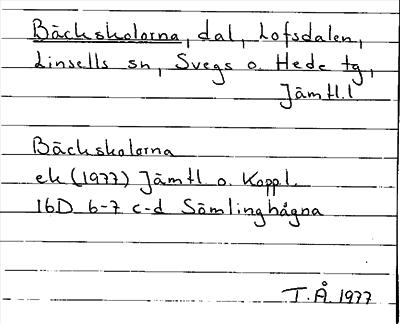 Bäckskolorna, dal, Lofsdalen,
Linsells sn, Svegs o. Hede tg,
Jämtl.l
Bäckskolorna
ek (1977) Jämtl. o. Koppl.
16D 6-7 c-d Sömlinghågna
T.Å. 1977